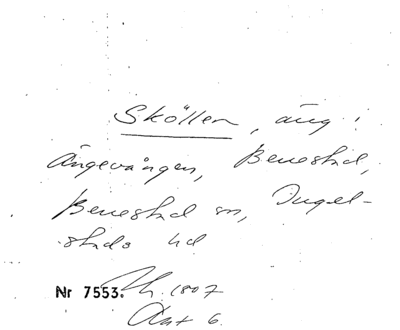 Sköllen, äng i
Ängavången, Benestad,
Benestad sn, Ingel-
stads hd
Nr 7553. Ch. 1807
Akt 6.